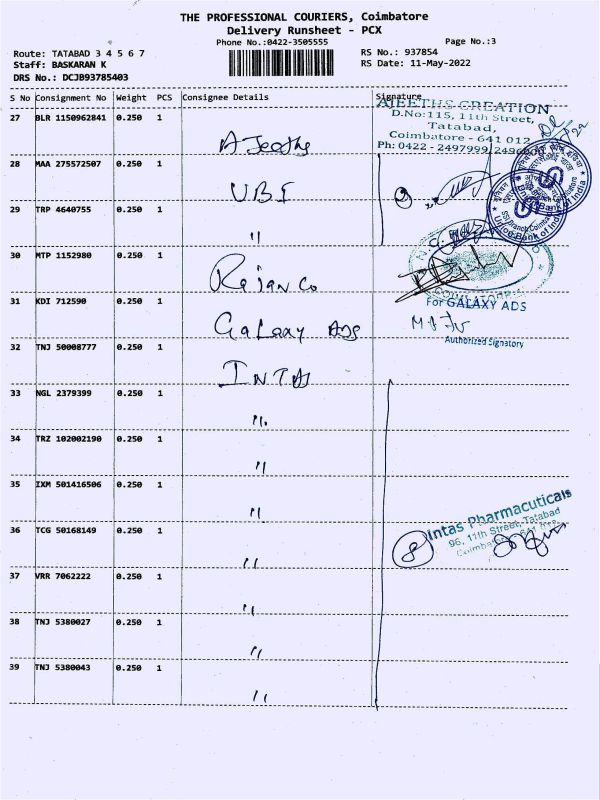 THE PROFESSIONAL COURIERS, Coimbatore
Delivery Runsheet - PCX
Phone No.:0422-3505555
Page No.:3
Route: TATABAD 3 4 5 6 7
Staff: BASKARAN K
DRS No.: DCJB93785403
RS No.: 937854
RS Date: 11-May-2022
S No Consignment No Weight PCS Consignee Details Signature
27 BLR 1150962841 0.250 1 AJeeths
AJEETHS CREATION
D.No:115, 11th Street,
Tatabad,
Coimbatore - 641 012
Ph: 0422 - 2497999,
28 MAA 275572507 0.250 1 UBI
Union Bank of India
29 TRP 4640755 0.250 1 "
30 MTP 1152980 0.250 1 Rajan Co
31 KDI 712590 0.250 1 Galaxy ADS
For GALAXY ADS
Authorized Signatory
32 TNJ 50008777 0.250 1 INTAS
33 NGL 2379399 0.250 1 "
34 TRZ 102002190 0.250 1 "
35 IXM 501416506 0.250 1 "
36 TCG 50168149 0.250 1 "
8
Intas Pharmacuticals
96, 11th Street, Tatabad
37 VRR 7062222 0.250 1 "
38 TNJ 5380027 0.250 1 "
39 TNJ 5380043 0.250 1 "